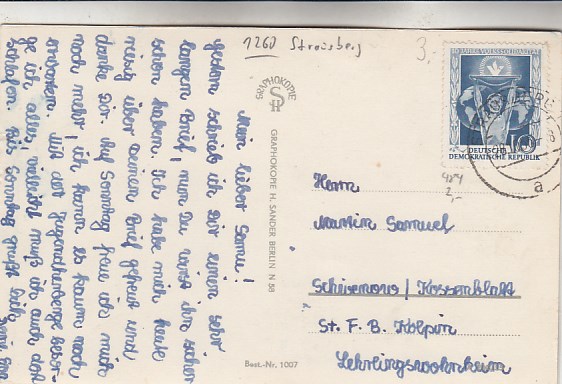 1260 Strausberg
3.
GRAPHOKOPIE
SH
GRAPHOKOPIE H. SANDER BERLIN N 58
10 JAHRE VOLKSSOLIDARITÄT
10
DEUTSCHE
DEMOKRATISCHE REPUBLIK
a
2,-
Mein lieber Samu!
gestern schrieb ich Dir einen sehr
langen Brief, nun Du wirst ihn sicher
schon haben. Ich habe mich heute
riesig über Deinen Brief gefreut und
danke Dir. Auf Sonntag freue ich mich
noch mehr, ich kann es kaum noch
erwarten. Mit der Jugendherberge besor-
ge ich alles, vielleicht muß ich auch dort
schlafen. Bis Sonntag grüßt Dich
Herrn
Martin Samuel
Kossenblatt
St. F. B. Kolpin
Lehrlingswohnheim
Best.-Nr. 1007